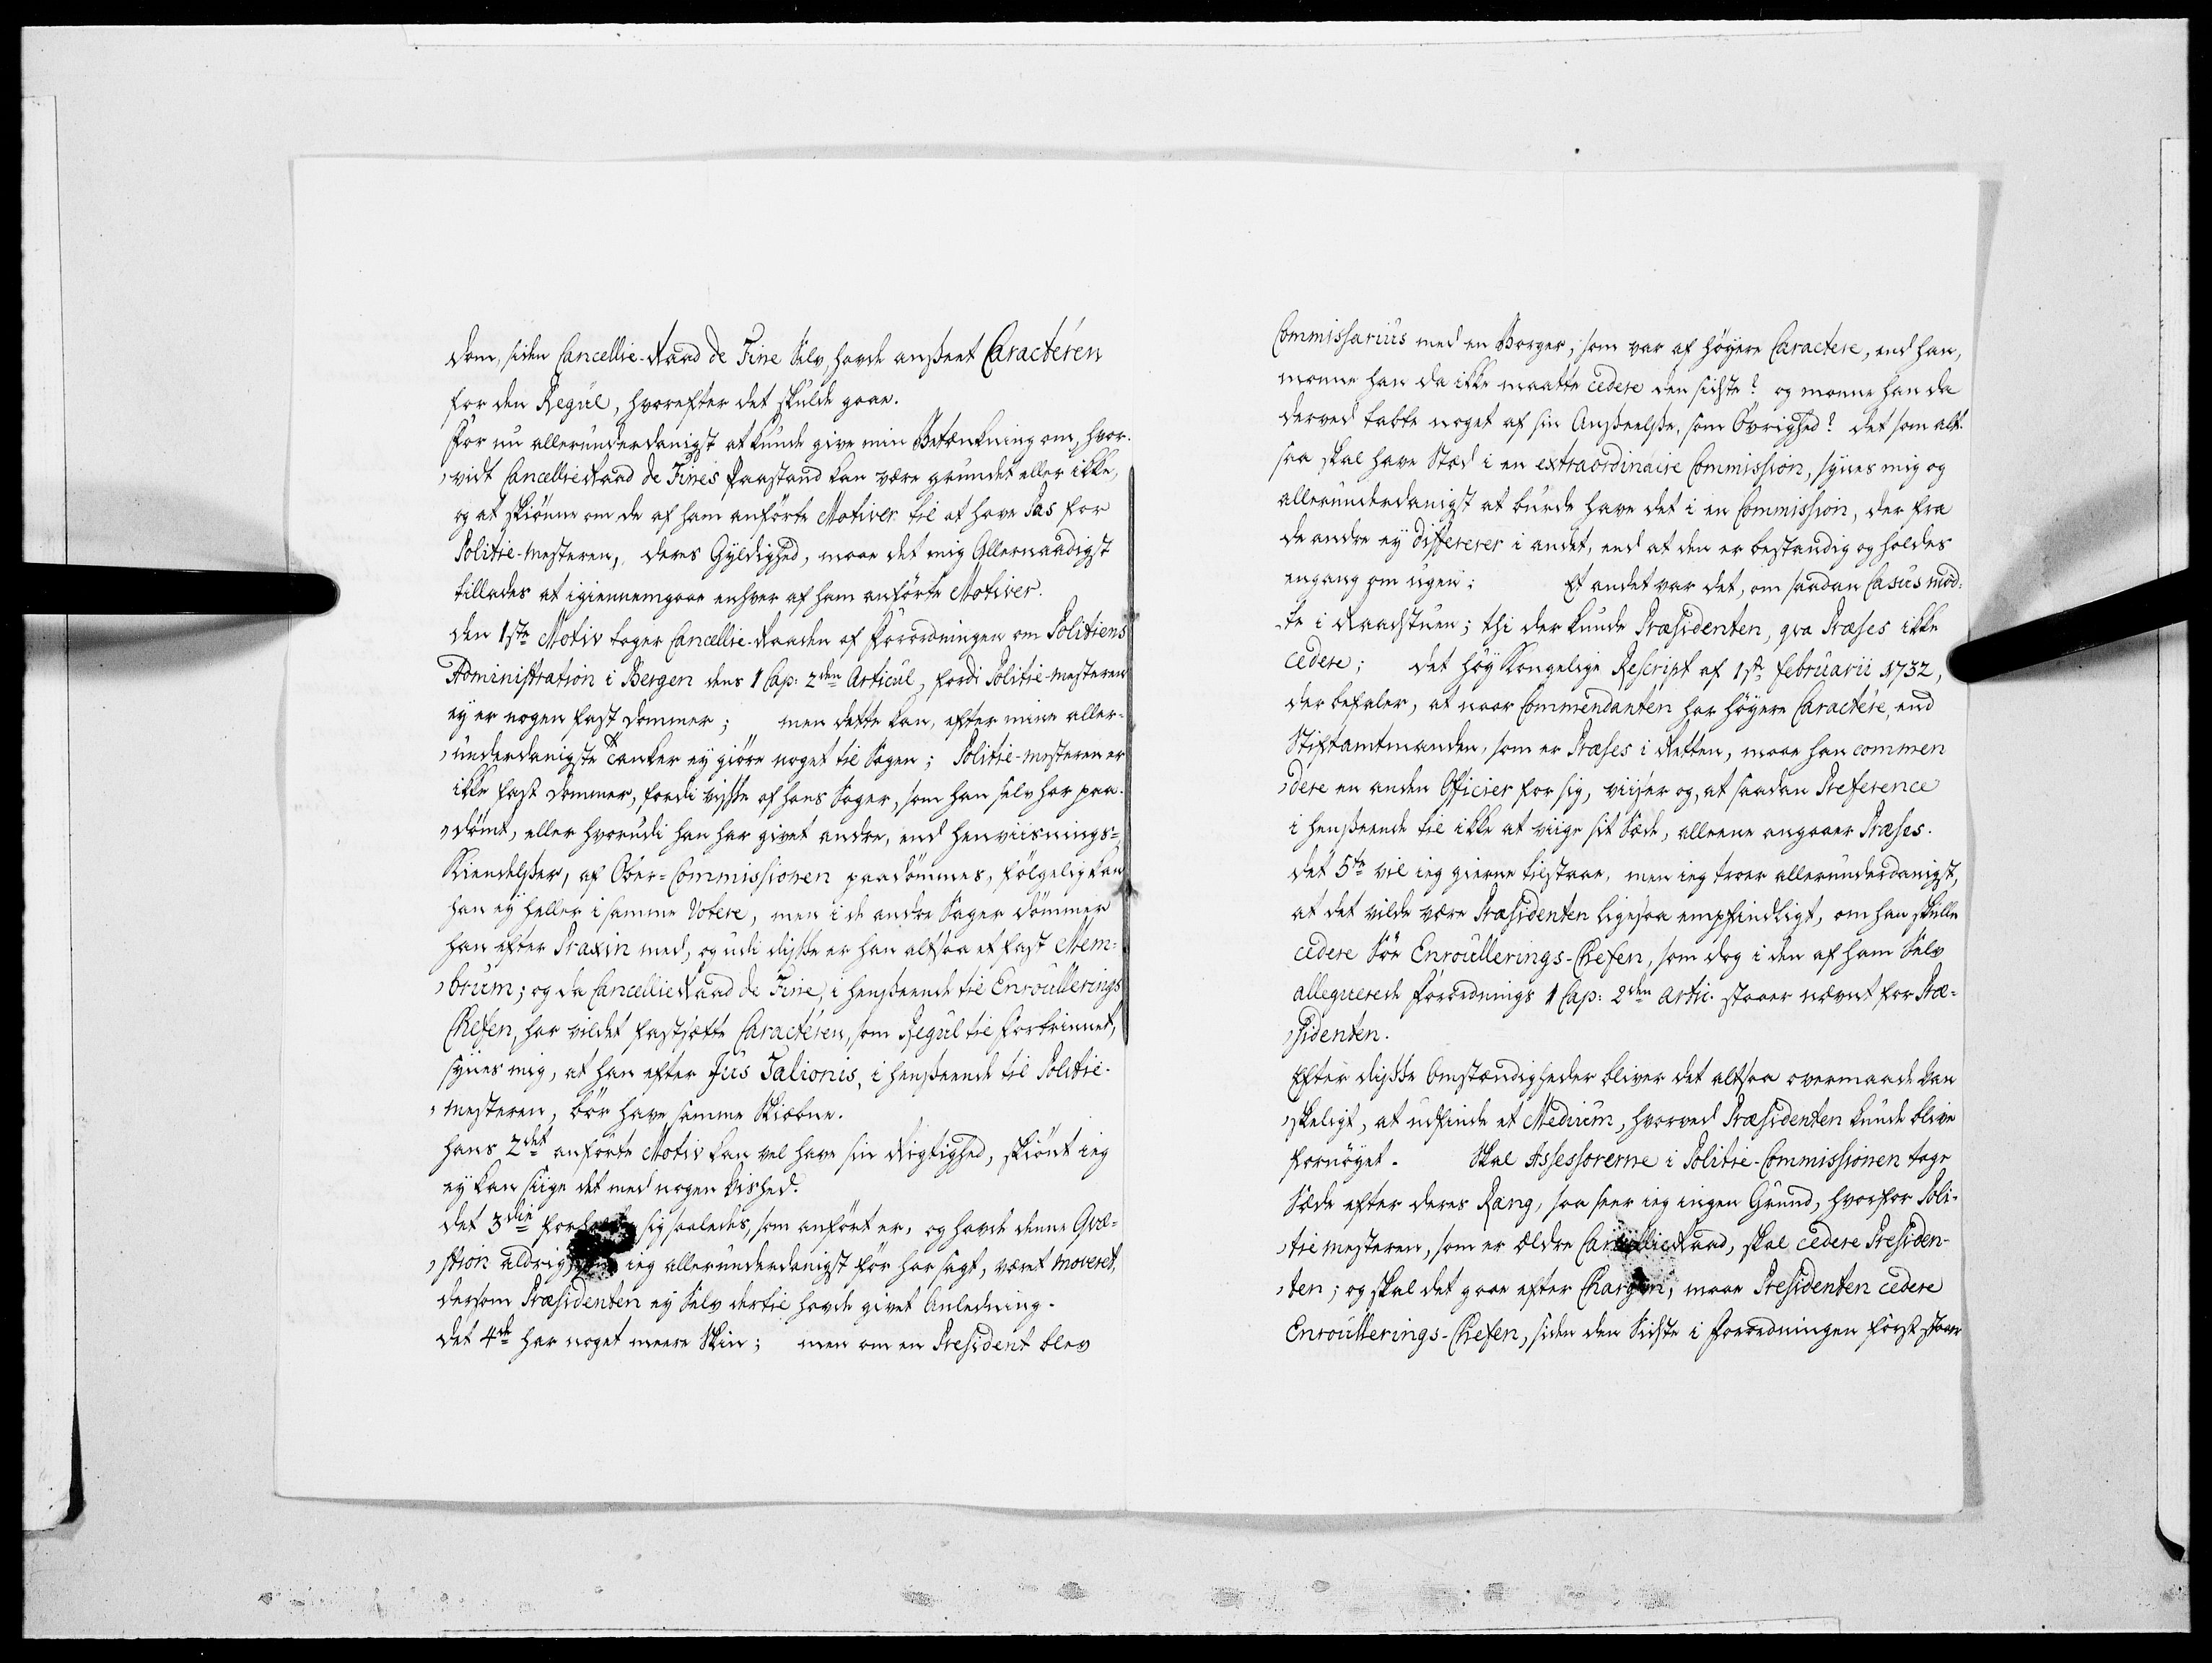 dom, siden Cancellie-Raad de Fine Selv, havde anßeet Caractéren
for den Regul, hvorefter det skulde gaae.
For nu allerunderdanigst at kunde give min Betænkning om, hvor-
vidt CancellieRaad de Fines Paastand kan være grundet eller ikke,
og at skiønne om de af ham anførte Motiver til at have Pas for
Politie-Mesteren, deres Gyldighed, maae det mig Allernaadigst
tillades at igiennemgaae enhver af ham anførte Motiver.
Den 1ste Motiv tager Cancellie-Raaden af Forordningen om Politiens
Administration i Bergen dens 1 Cap: 2den Articul, fordi Politie-Mesteren
ey er nogen fast Dommer; men dette kan, efter mine aller-
underdanigste Tanker ey giøre noget til Sagen; Politie-Mesteren er
ikke fast Dommer, fordi viße af hans Sager, som han selv har paa-
dømt, eller hvorudi han har givet andre, end henviisnings-
Kiendelßer, af Ober-Commissionen paadømmes, følgelig kan
han ey heller i samme Votere, men i de andre Sager dømmer
han efter Praxin med, og udi diße er han altsaa et fast Mem-
brum; og da CancellieRaad de Fine, i henßeende til Enroullerings
Chefen, har vildet fastsætte Caractéren, som Regul til Fortrinnet,
synes mig, at han efter Jus Talionis, i henßeende til Politie-
Mesteren, bør have samme Skiæbne.
Hans 2det anførte Motiv kan vel have sin Rigtighed, skiønt ieg
ey kan siige det med nogen Vished.
Det 3die sig saaledes, som anført er, og havde denne Qvæ-
stion aldrig ieg allerunderdanigst før har sagt, været moveret,
dersom Præsidenten ey Selv dertil havde givet Anledning.
Det 4de har noget meere Skin; men om en President blev
Commissarius med en Borger, som var af høyere Caractere, end han,
monne han da ikke maatte cedere den sidste? og monne han da
derved tabte noget af sin Anßeelße, som Øvrighed? Det som alt-
saa skal have Stæd i en extraordinaire Commission, synes mig og
allerunderdanigst at burde have det i en Commission, der fra
de andre ey differerer i andet, end at den er bestandig og holdes
engang om ugen; Et andet var det, om saadan Casus mød-
te i Raadstuen; thi der kunde Præsidenten, qva Præses ikke
cedere; Det høy Kongelige Rescript af 1ste Februarii 1732,
der befaler, at naar Commendanten har høyere Caractére, end
Stiftamtmanden, som er Præses i Retten, maae han commen
dere en anden Officier for sig, viiser og, at saadan Preference
i henßeende til ikke at viige sit Sæde, alleene angaaer Præses.
Det 5te vil ieg gierne tilstaae, men ieg troer allerunderdanigst,
at det vilde være Præsidenten ligesaa empfindligt, om han skulle
cedere Søe Enroullerings-Chefen, som dog i den af ham Selv
allegverede Forordnings 1 Cap: 2den Artic. staaer nævnt for Præ-
sidenten.
Efter diße Omstændigheder bliver det altsaa overmaade van
skeligt, at udfinde et Medium, hvorved Præsidenten kunde blive
fornøyet. Skal Assessorerne i Politie-Commissionen tage
Sæde efter deres Rang, saa seer ieg ingen Grund, hvorfor Poli-
tie Mesteren, som er ældre CancellieRaad, skal cedere Presiden-
ten; og skal det gaae efter Chargen, maae Presidenten cedere
Enroullerings-Chefen, siden den Sidste i Forordningen først staaer